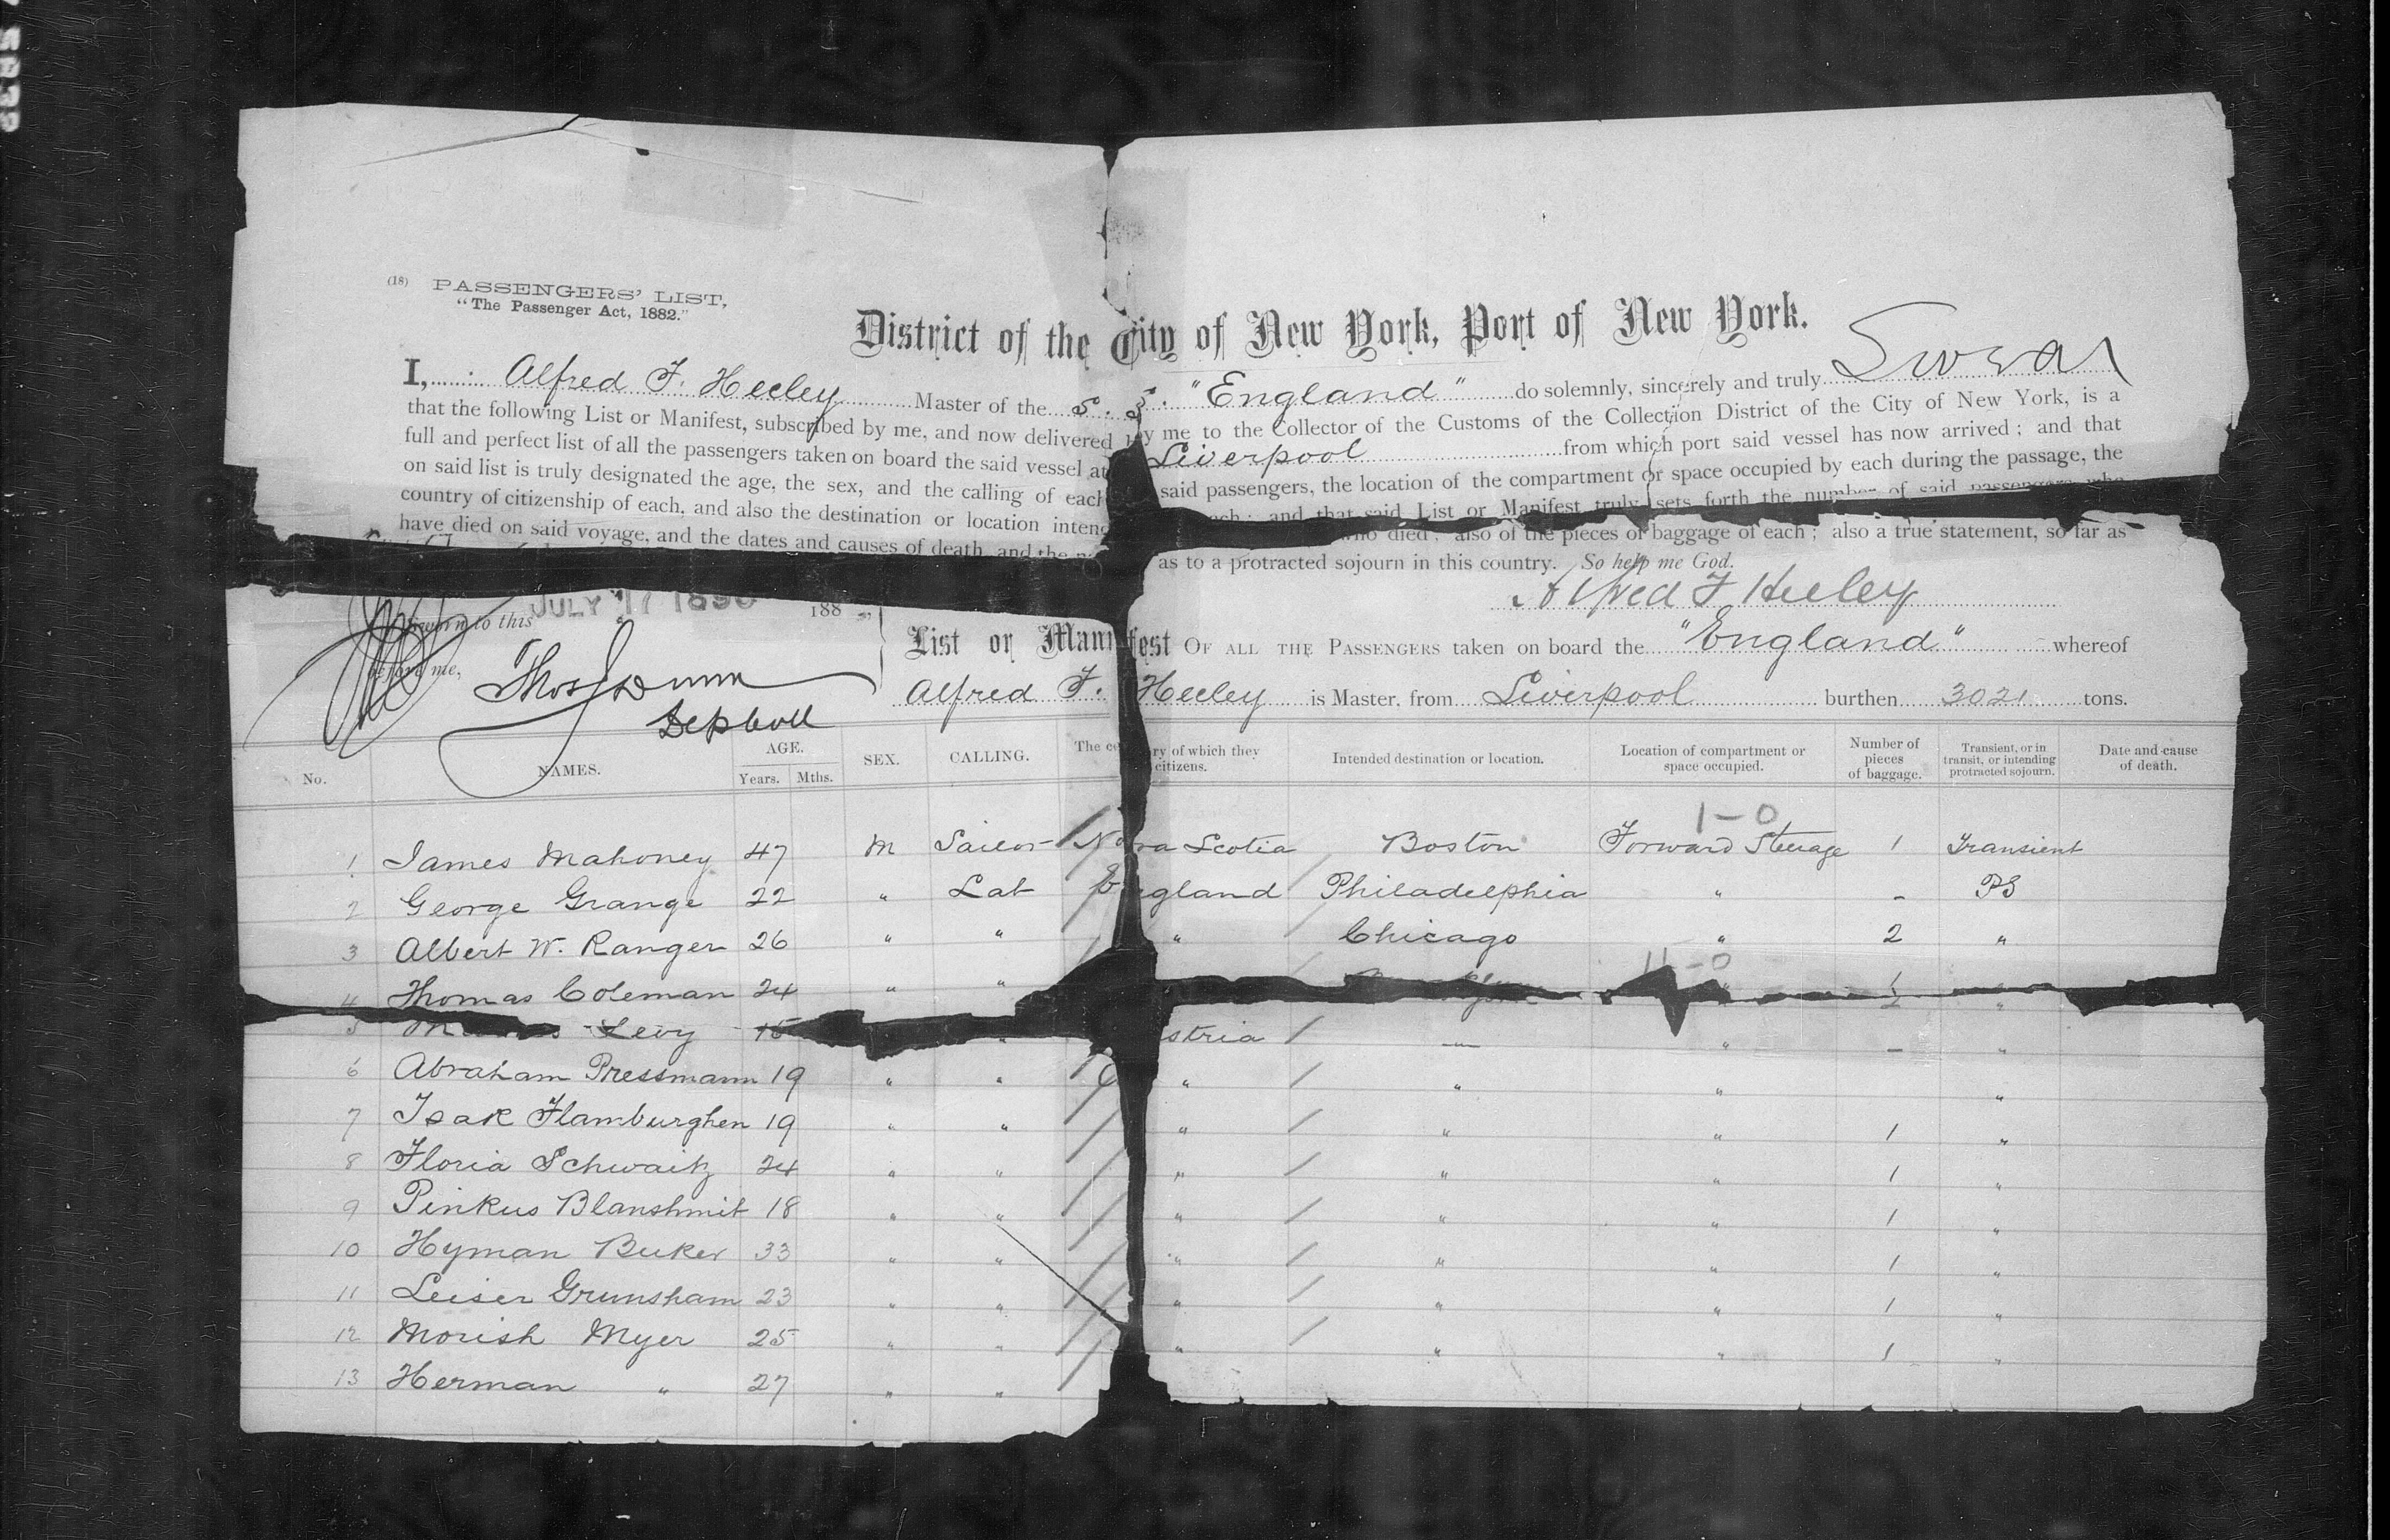 (18) PASSENGERS' LIST,
"The Passenger Act, 1882."
District of the City of New York, Port of New York.
I, Alfred F. Heeley Master of the S. S. "England" do solemnly, sincerely and truly Swear
that the following List or Manifest, subscribed by me, and now delivered by me to the Collector of the Customs of the Collection District of the City of New York, is a
full and perfect list of all the passengers taken on board the said vessel at Liverpool from which port said vessel has now arrived; and that
on said list is truly designated the age, the sex, and the calling of each said passengers, the location of the compartment or space occupied by each during the passage, the
country of citizenship of each, and also the destination or location each; and that said List or Manifest truly sets forth the number of said passengers who
have died on said voyage, and the dates and causes of death, and the who died; also of the pieces of baggage of each; also a true statement, so far as
as to a protracted sojourn in this country. So help me God.
Alfred F Heeley
Sworn to this JULY 17 1890 188
before me,
Thos Dunn
Dep Coll
List or Manifest OF ALL THE PASSENGERS taken on board the "England" whereof
Alfred F. Heeley is Master, from Liverpool burthen 3021 tons.
No. NAMES. AGE. Years. Mths. SEX. CALLING. The country of which they citizens. Intended destination or location. Location of compartment or space occupied. Number of pieces of baggage. Transient, or in transit, or intending protracted sojourn. Date and cause of death.
1-0
1 James Mahoney 47 M Sailor Nova Scotia Boston Forward Steerage 1 Transient
2 George Grange 22 " Lab England Philadelphia " - PS
3 Albert W. Ranger 26 " " " Chicago " 2 "
11-0
4 Thomas Coleman 24 " " " "
5 Levy 15 " stria — " — "
6 Abraham Pressmann 19 " " " " " "
7 Isak Flamburghen 19 " " " " " 1 "
8 Floria Schwaitz 24 " " " " " 1 "
9 Pinkus Blanshmit 18 " " " " " 1 "
10 Hyman Buker 33 " " " " " 1 "
11 Leiser Grunsham 23 " " " " " 1 "
12 Morish Myer 25 " " " " " 1 "
13 Herman " 27 " "